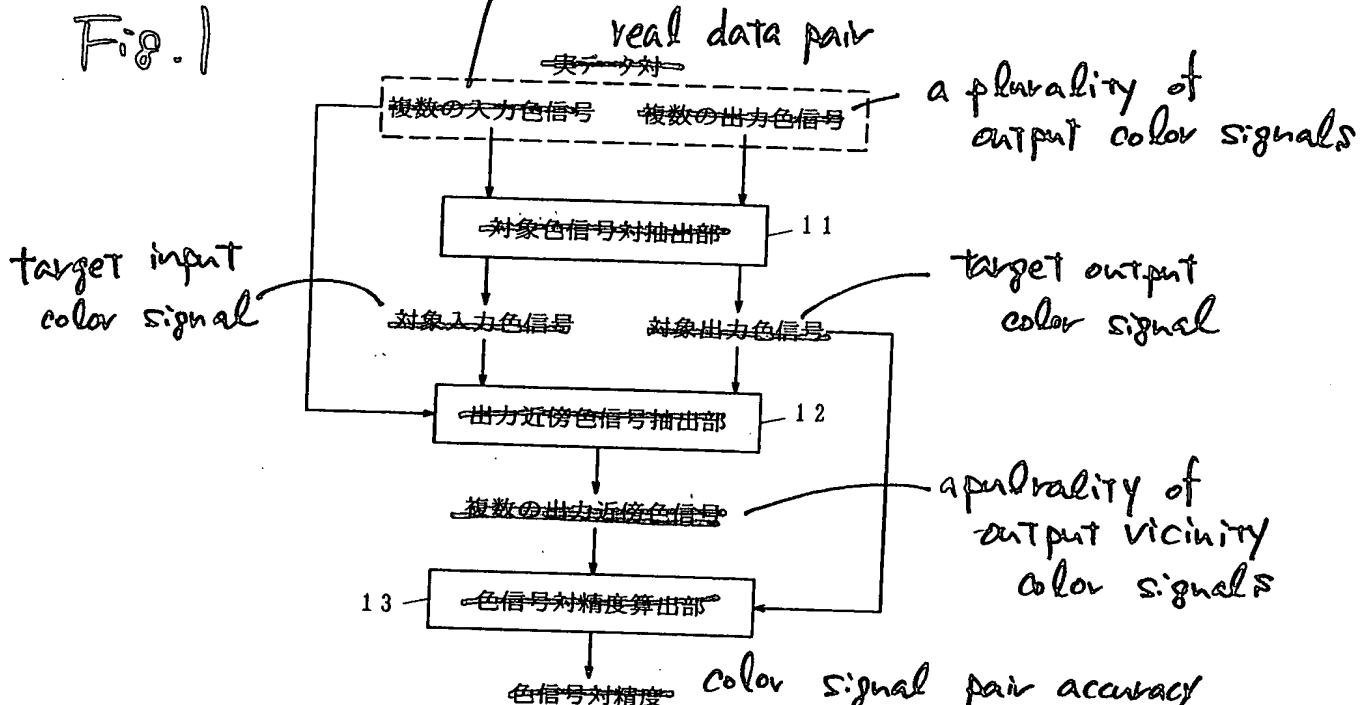 Fig.1
real data pair
実データ対
複数の入力色信号
複数の出力色信号
a plurality of
output color signals
対象色信号対抽出部
11
target input
color signal
target output
color signal
対象入力色信号
対象出力色信号
出力近傍色信号抽出部
12
複数の出力近傍色信号
apulrality of
output vicinity
color signals
13
色信号対精度算出部
色信号対精度
color signal pair accuracy